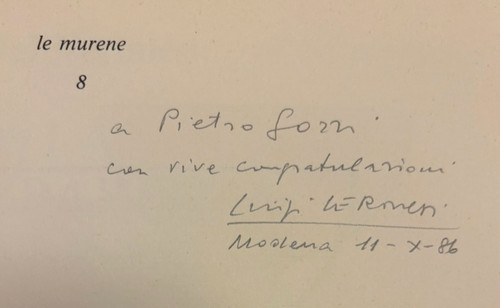 le murene
8
a Pietro Gozzi
con vive congratulazioni
Luigi
Modena 11-X-86